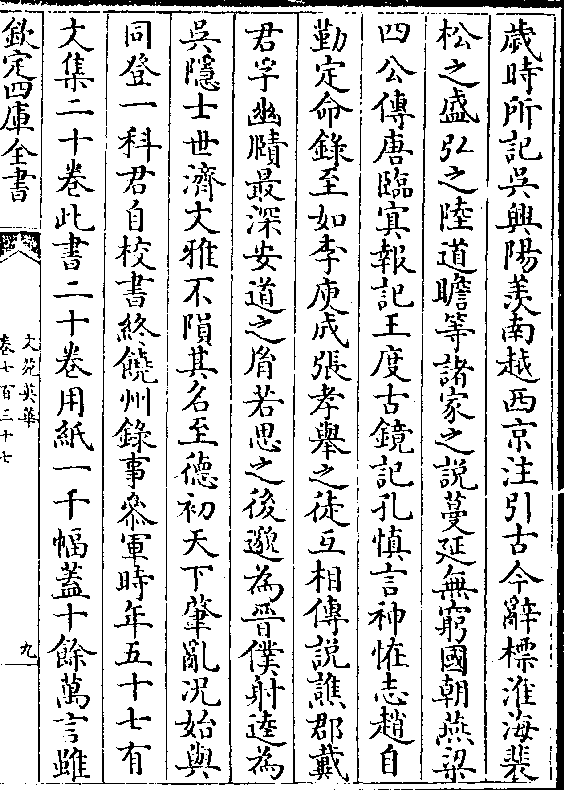 歲時所記吳興陽羨南越西京注引古今辭標淮海裴
松之盛弘之陸道瞻等諸家之說蔓延無窮國朝燕梁
四公傳唐臨㝠報記王度古鏡記孔慎言神怪志趙自
勤定命錄至如李庾成張孝舉之徒互相傳說譙郡戴
君孚幽賾最深安道之𦙍若思之後邈為晉僕射逵為
吳隱士世濟文雅不隕其名至德初天下肇亂况始與
同登一科君自校書終饒州錄事叅軍時年五十七有
文集二十卷此書二十卷用紙一千幅蓋十餘萬言雖
欽定四庫全書
文苑英華
卷七百三十七
九